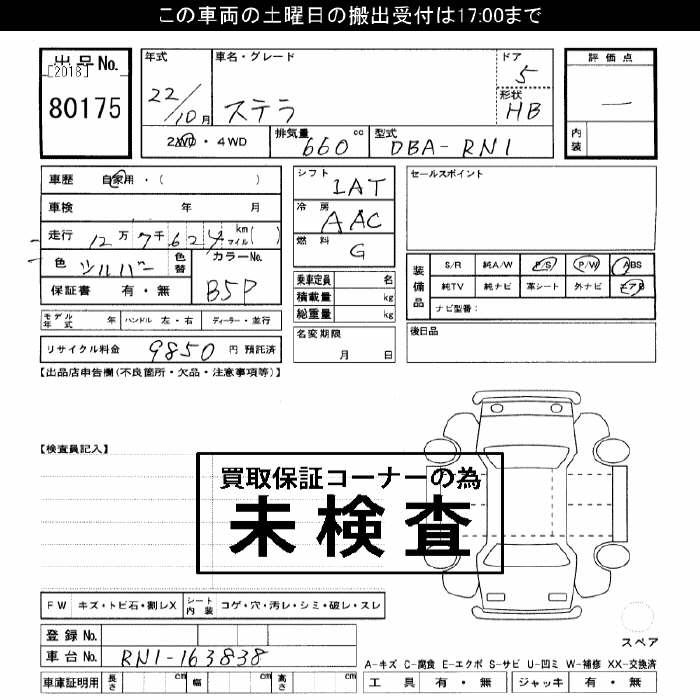 この車両の土曜日の搬出受付は17:00まで
出品No.
[2018]
80175
年式
22/10月
車名・グレード
ステラ
ドア
5
形状
HB
評価点
―
内装
2WD・4WD
排気量 660 cc
型式 DBA-RN1
車歴 自家用・( )
車検 年 月
走行 12万7千624 km マイル( )
色 シルバー 色替
カラーNo. B5P
保証書 有・無
モデル年式 年 ハンドル 左・右 ディーラー・並行
リサイクル料金 9850 円 預託済
シフト IAT
冷房 AAC
燃料 G
乗車定員 名
積載量 kg
総重量 kg
名変期限
月 日
セールスポイント
装備品
S/R 純A/W P/S P/W ABS
純TV 純ナビ 革シート 外ナビ エアB
ナビ型番:
後日品
【出品店申告欄(不良箇所・欠品・注意事項等)】
【検査員記入】
買取保証コーナーの為
未検査
FW キズ・トビ石・割レX シート内装 コゲ・穴・汚レ・シミ・破レ・スレ
登録No.
車台No. RN1-163838
車庫証明用 長さ cm 幅 cm 高さ cm
スペア
A-キズ C-腐食 E-エクボ S-サビ U-凹ミ W-補修 XX-交換済
工具 有・無 ジャッキ 有・無